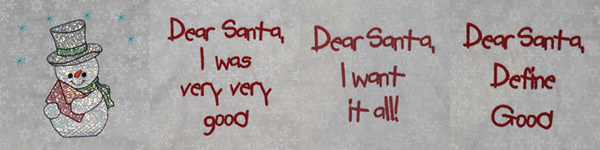 Dear Santa,
I was
very very
good
Dear Santa,
I want
it all!
Dear Santa,
Define
Good